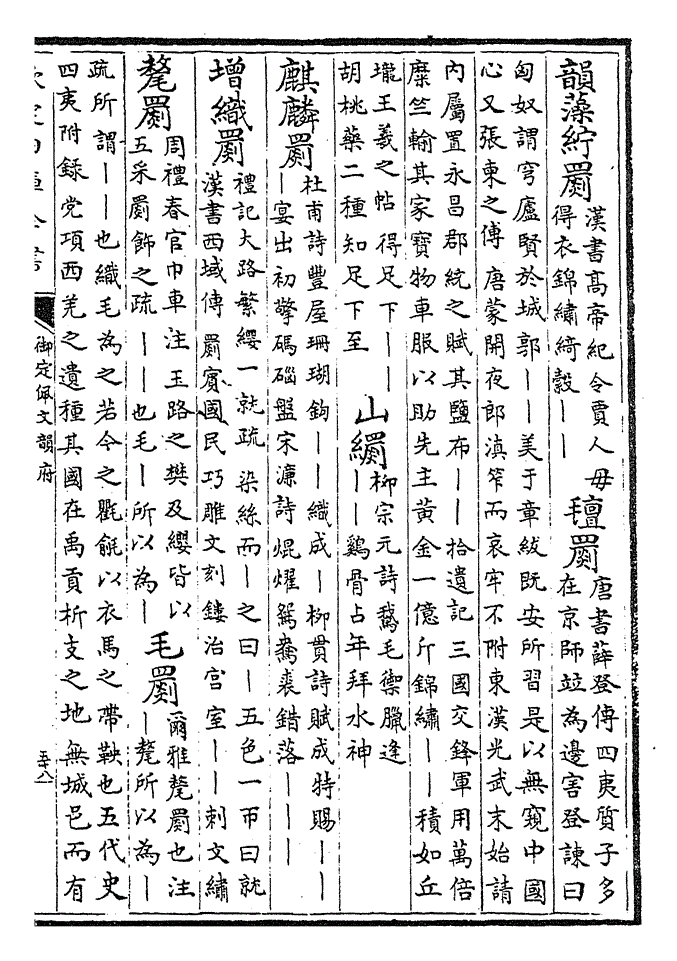 韻藻紵罽
漢書高帝紀令賈人毋
得衣錦繡綺縠丨丨
氊罽
唐書薛登傳四夷質子多
在京師竝為邊害登諫曰
匈奴謂穹廬賢於城郭丨丨美于章紱既安所習是以無窺中國
心又張柬之傳唐蒙開夜郎滇笮而哀牢不附東漢光武末始請
內屬置永昌郡統之賦其鹽布丨丨拾遺記三國交鋒軍用萬倍
糜竺輸其家寶物車服以助先主黃金一億斤錦繡丨丨積如丘
壠王羲之帖得足下丨丨
胡桃藥二種知足下至
山罽
柳宗元詩鵝毛禦臘逢
丨丨雞骨占年拜水神
麒麟罽
杜甫詩豐屋珊瑚鉤丨丨織成丨柳貫詩賦成特賜丨丨
丨宴出初擎碼碯盤宋濂詩焜燿鴛鴦裘錯落丨丨丨
增織罽
禮記大路繁纓一就疏染絲而丨之曰丨五色一帀曰就
漢書西域傳罽賓國民巧雕文刻鏤治宮室丨丨刺文繡
氂罽
周禮春官巾車注玉路之樊及纓皆以
五采罽飾之疏丨丨也毛丨所以為丨
毛罽
爾雅氂罽也注
丨氂所以為丨
疏所謂丨丨也織毛為之若今之氍毹以衣馬之帶鞅也五代史
四夷附錄党項西羌之遺種其國在禹貢析支之地無城邑而有
欽定四庫全書
御定佩文韻府
五十八